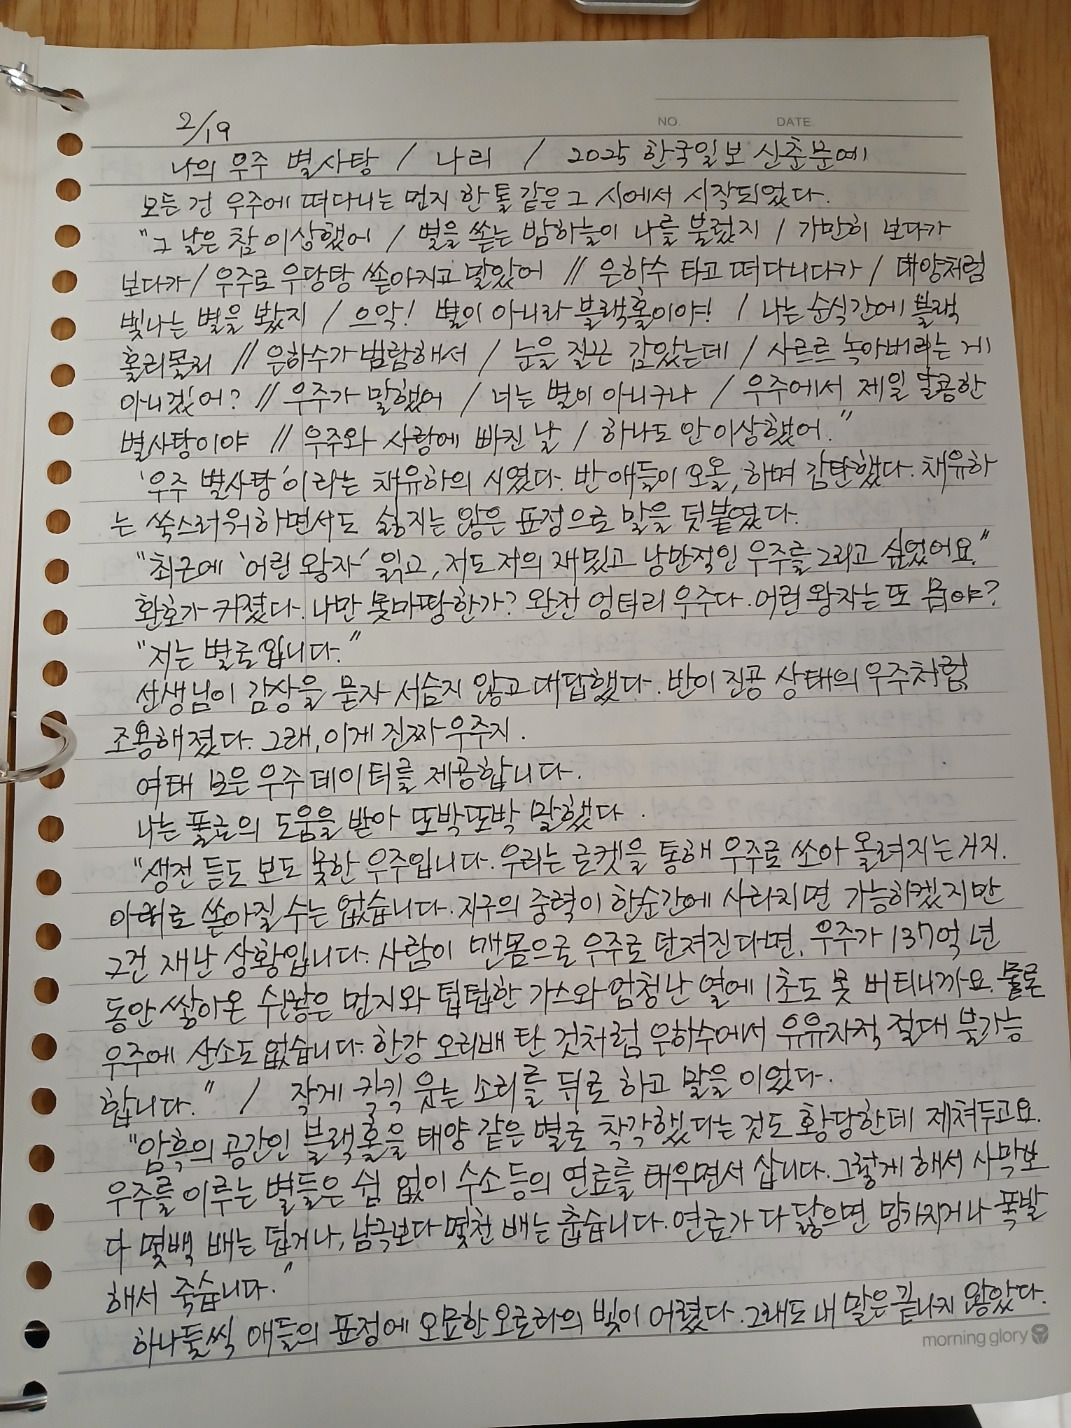 NO. DATE
2/19
나의 우주 별사탕 / 나리 / 2025 한국일보 신춘문예
모든 건 우주에 떠다니는 먼지 한 톨 같은 그 시에서 시작되었다.
"그 날은 참 이상했어 / 별을 쏟는 밤하늘이 나를 불렀지 / 가만히 보다가
보다가 / 우주로 우당탕 쏟아지고 말았어 // 은하수 타고 떠다니다가 / 태양처럼
빛나는 별을 봤지 / 으악! 별이 아니라 블랙홀이야! / 나는 순식간에 블랙
홀리몰리 // 은하수가 범람해서 / 눈을 질끈 감았는데 / 사르르 녹아버리는 게
아니겠어? // 우주가 말했어 / 너는 별이 아니구나 / 우주에서 제일 달콤한
별사탕이야 // 우주와 사랑에 빠진 날 / 하나도 안 이상했어."
'우주 별사탕'이라는 채유하의 시였다. 반 애들이 오올, 하며 감탄했다. 채유하
는 쑥스러워하면서도 싫지는 않은 표정으로 말을 덧붙였다.
"최근에 '어린 왕자' 읽고, 저도 저의 재밌고 낭만적인 우주를 그리고 싶었어요."
환호가 커졌다. 나만 못마땅한가? 완전 엉터리 우주다. 어린 왕자는 또 뭠야?
"저는 별로입니다."
선생님이 감상을 묻자 서슴지 않고 대답했다. 반이 진공 상태의 우주처럼
조용해졌다. 그래, 이게 진짜 우주지.
여태 모은 우주 데이터를 제공합니다.
나는 풀글의 도움을 받아 또박또박 말했다.
"생전 듣도 보도 못한 우주입니다. 우리는 로켓을 통해 우주로 쏘아 올려지는 거지.
아래로 쏟아질 수는 없습니다. 지구의 중력이 한순간에 사라지면 가능하겠지만
그건 재난 상황입니다. 사람이 맨몸으로 우주로 던져진다면, 우주가 137억 년
동안 쌓아온 수많은 먼지와 텁텁한 가스와 엄청난 열에 1초도 못 버티니까요. 물론
우주에 산소도 없습니다. 한강 오리배 탄 것처럼 은하수에서 유유자적 절대 불가능
합니다." / 작게 킥킥 웃는 소리를 뒤로 하고 말을 이었다.
"암흑의 공간인 블랙홀을 태양 같은 별로 착각했다는 것도 황당한데 제쳐두고요.
우주를 이루는 별들은 쉼 없이 수소 등의 연료를 태우면서 삽니다. 그렇게 해서 사막보
다 몇백 배는 덥거나, 남극보다 몇천 배는 춥습니다. 연료가 다 닳으면 망가지거나 폭발
해서 죽습니다."
하나둘씩 애들의 표정에 오묘한 오로라의 빛이 어렸다. 그래도 내 말은 끝나지 않았다.
morning glory